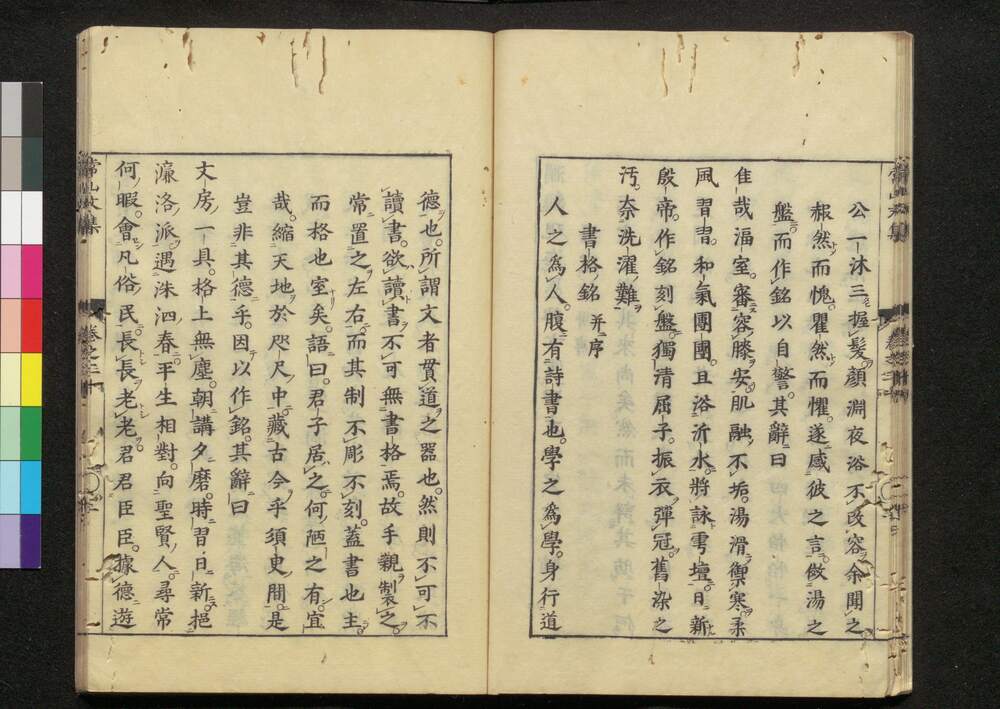 公一沐三握髮顏淵夜浴不改容余聞之
赧然而愧瞿然而懼遂感彼之言倣湯之
盤而作銘以自警其辭曰
隹哉湢室審容膝安肌融不垢湯滑禦寒柔
風習習和氣團團且浴沂水將詠雩壇日新
殷帝作銘刻盤獨清屈子振衣彈冠舊染之
汚奈洗濯難
書格銘 并序
人之爲人腹有詩書也學之爲學身行道
德也所謂文者貫道之器也然則不可不
讀書欲讀書不可無書格焉故手親製之
常置之左右而其制不彫不刻蓋書也主
而格也室矣語曰君子居之何陋之有宜
哉縮天地於咫尺中藏古今乎須臾間是
豈非其德乎因以作銘其辭曰
文房一具格上無塵朝講夕磨時習日新挹
濂洛派遇洙泗春平生相對向聖賢人尋常
何暇會凡俗民長長老老君君臣臣據德遊
常山文集
卷之二十